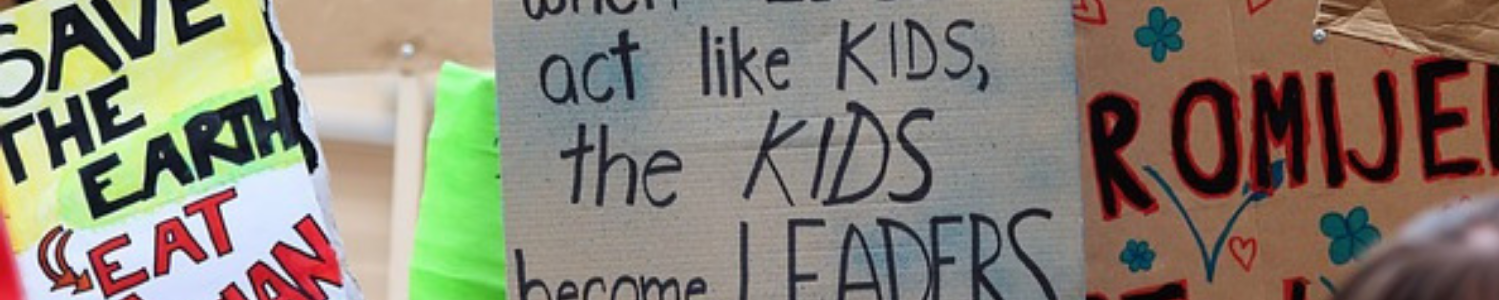 SAVE
THE
EARTH
EAT
when
act like KIDS,
the KIDS
become LEADERS
ROMIJE